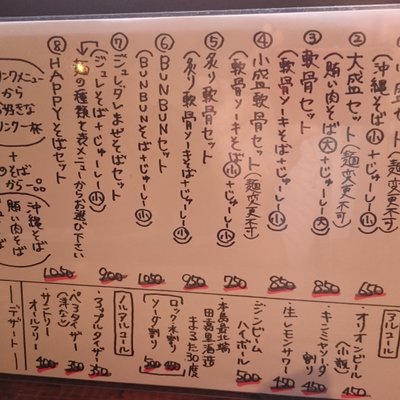 (沖縄そば小+じゅーしー小)
② 大盛セット(麺変更不可)
(賄い肉そば大+じゅーしー大)
650
③ 軟骨セット
(軟骨ソーキそば+じゅーしー小)
850
④ 小盛軟骨セット(麺変更不可)
(軟骨ソーキそば小+じゅーしー小)
750
⑤ 炙り軟骨セット
(炙り軟骨ソーキそば+じゅーしー小)
950
⑥ BUNBUNセット
(BUNBUNそば+じゅーしー小)
1050
⑦ ジュレダレまぜそばセット
(ジュレそば+じゅーしー小)
900
そばの種類を表メニューからお選び下さい
⑧ HAPPYそばセット
1050
ドリンクメニュー
から
お好きな
ドリンク一杯
+
そば
から
沖縄そば
賄い肉そば
アルコール
・オリオンビール
(小瓶)
450
・キンミヤソーダ
割り
450
・生レモンサワー
450
・ジンビーム
ハイボール
500
・本島最北端
田嘉里酒造
まるた30度
ロック・水割り
450
ソーダ割り
500
ノンアルコール
・アップルタイザー
350
・ペアタイザー
(洋なし)
350
・サントリー
オールフリー
400
デザート